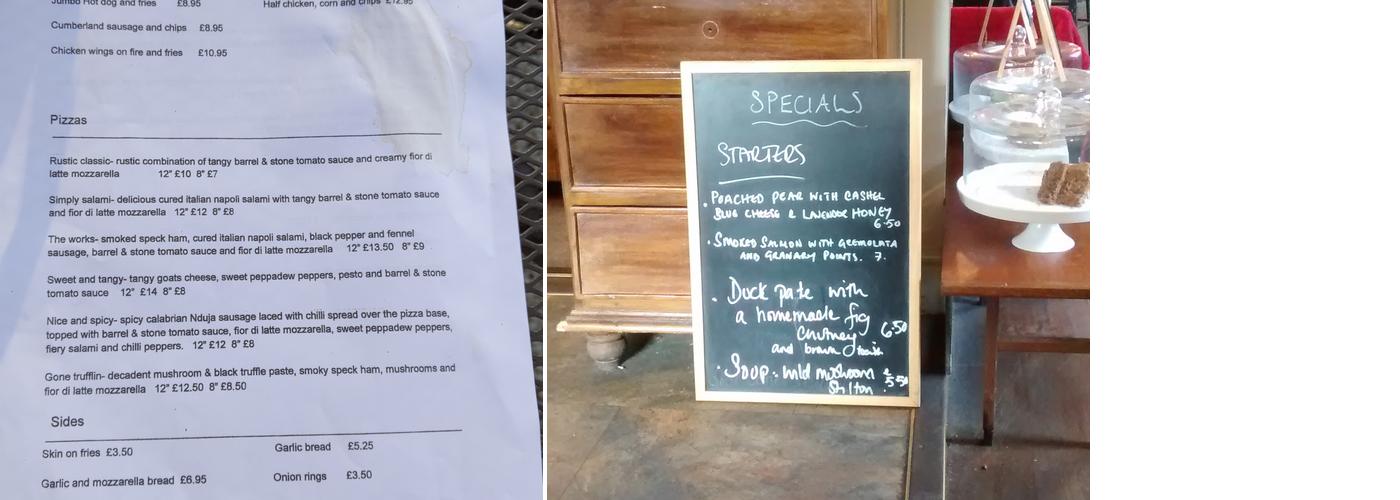 Jumbo Hot dog and fries £8.95
Half chicken, corn and chips £12.95
Cumberland sausage and chips £8.95
Chicken wings on fire and fries £10.95
Pizzas
Rustic classic- rustic combination of tangy barrel & stone tomato sauce and creamy fior di
latte mozzarella 12" £10 8" £7
Simply salami- delicious cured italian napoli salami with tangy barrel & stone tomato sauce
and fior di latte mozzarella 12" £12 8" £8
The works- smoked speck ham, cured italian napoli salami, black pepper and fennel
sausage, barrel & stone tomato sauce and fior di latte mozzarella 12" £13.50 8" £9
Sweet and tangy- tangy goats cheese, sweet peppadew peppers, pesto and barrel & stone
tomato sauce 12" £14 8" £8
Nice and spicy- spicy calabrian Nduja sausage laced with chilli spread over the pizza base,
topped with barrel & stone tomato sauce, fior di latte mozzarella, sweet peppadew peppers,
fiery salami and chilli peppers. 12" £12 8" £8
Gone trufflin- decadent mushroom & black truffle paste, smoky speck ham, mushrooms and
fior di latte mozzarella 12" £12.50 8" £8.50
Sides
Skin on fries £3.50
Garlic bread £5.25
Garlic and mozzarella bread £6.95
Onion rings £3.50
SPECIALS
STARTERS
. POACHED PEAR WITH CASHEL
BLUE CHEESE & LAVENDER HONEY
6.50
. SMOKED SALMON WITH GREMOLATA
AND GRANARY POINTS. 7.
. Duck pate with
a homemade fig
Chutney 6.50
and brown toast
. Soup: wild mushroom £5.50
Stilton